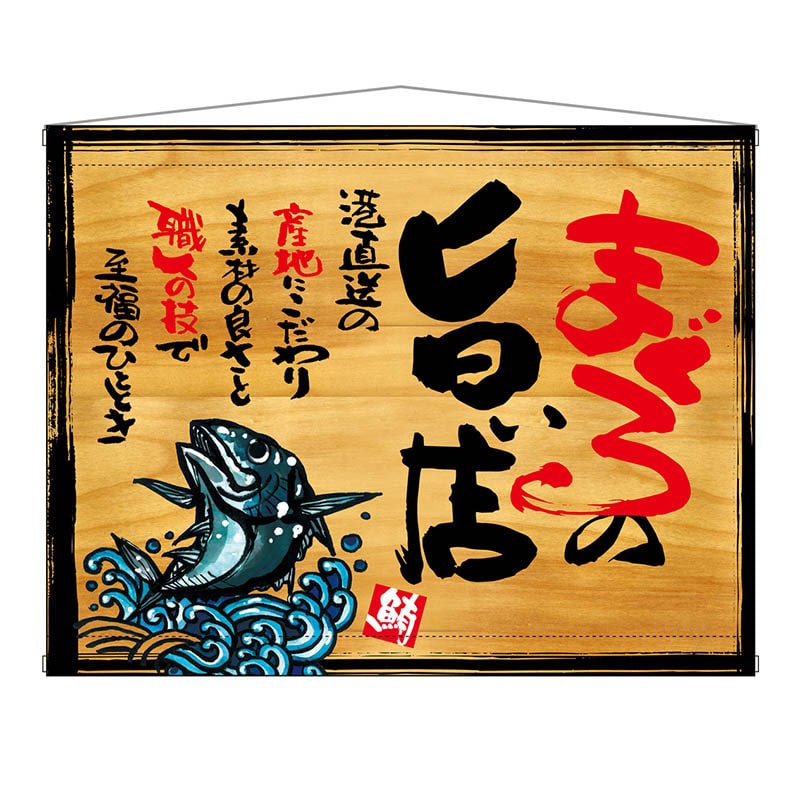 まぐろの
旨い店
港直送の
産地にこだわり
素材の良さと
職人の技で
至福のひととき
鮪